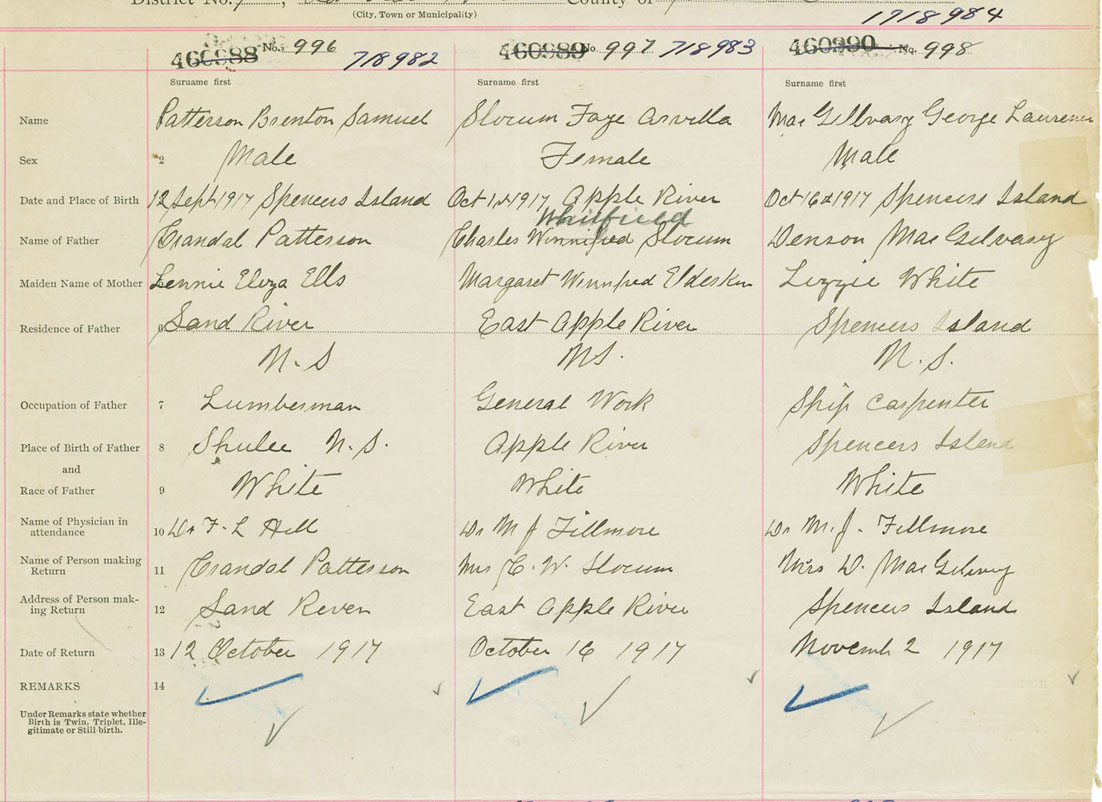 District No. County of
(City, Town or Municipality)
1718984
460988 No. 996 718982 460989 No. 997 718983 460990 No. 998
Surname first Surname first Surname first
Name Patterson Brenton Samuel Slocum Faye Arvilla Mac Gillvary George Laurence
Sex 2 Male Female Male
Date and Place of Birth 12 Sept 1917 Spencers Island Oct 1st 1917 Apple River Oct 16th 1917 Spencers Island
Whitfield
Name of Father Crandal Patterson Charles Winnifred Slocum Denson MacGilvary
Maiden Name of Mother Lennie Eloza Ells Margaret Winnifred Lizzie White
Residence of Father 6 Sand River East Apple River Spencers Island
N.S NS. N.S.
Occupation of Father 7 Lumberman General Work Ship Carpenter
Place of Birth of Father 8 Shulee N.S. Apple River Spencers Island
and
Race of Father 9 White White White
Name of Physician in
attendance 10 Dr F. L Hill Dr M J Fillmore Dr M. J. Fillmore
Name of Person making
Return 11 Crandal Patterson Mrs C. W. Slocum Mrs D. MacGilvry
Address of Person mak-
ing Return 12 Sand River East Apple River Spencers Island
Date of Return 13 12 October 1917 October 16 1917 Novemb 2 1917
REMARKS 14
Under Remarks state whether
Birth is Twin, Triplet, Ille-
gitimate or Still-birth.